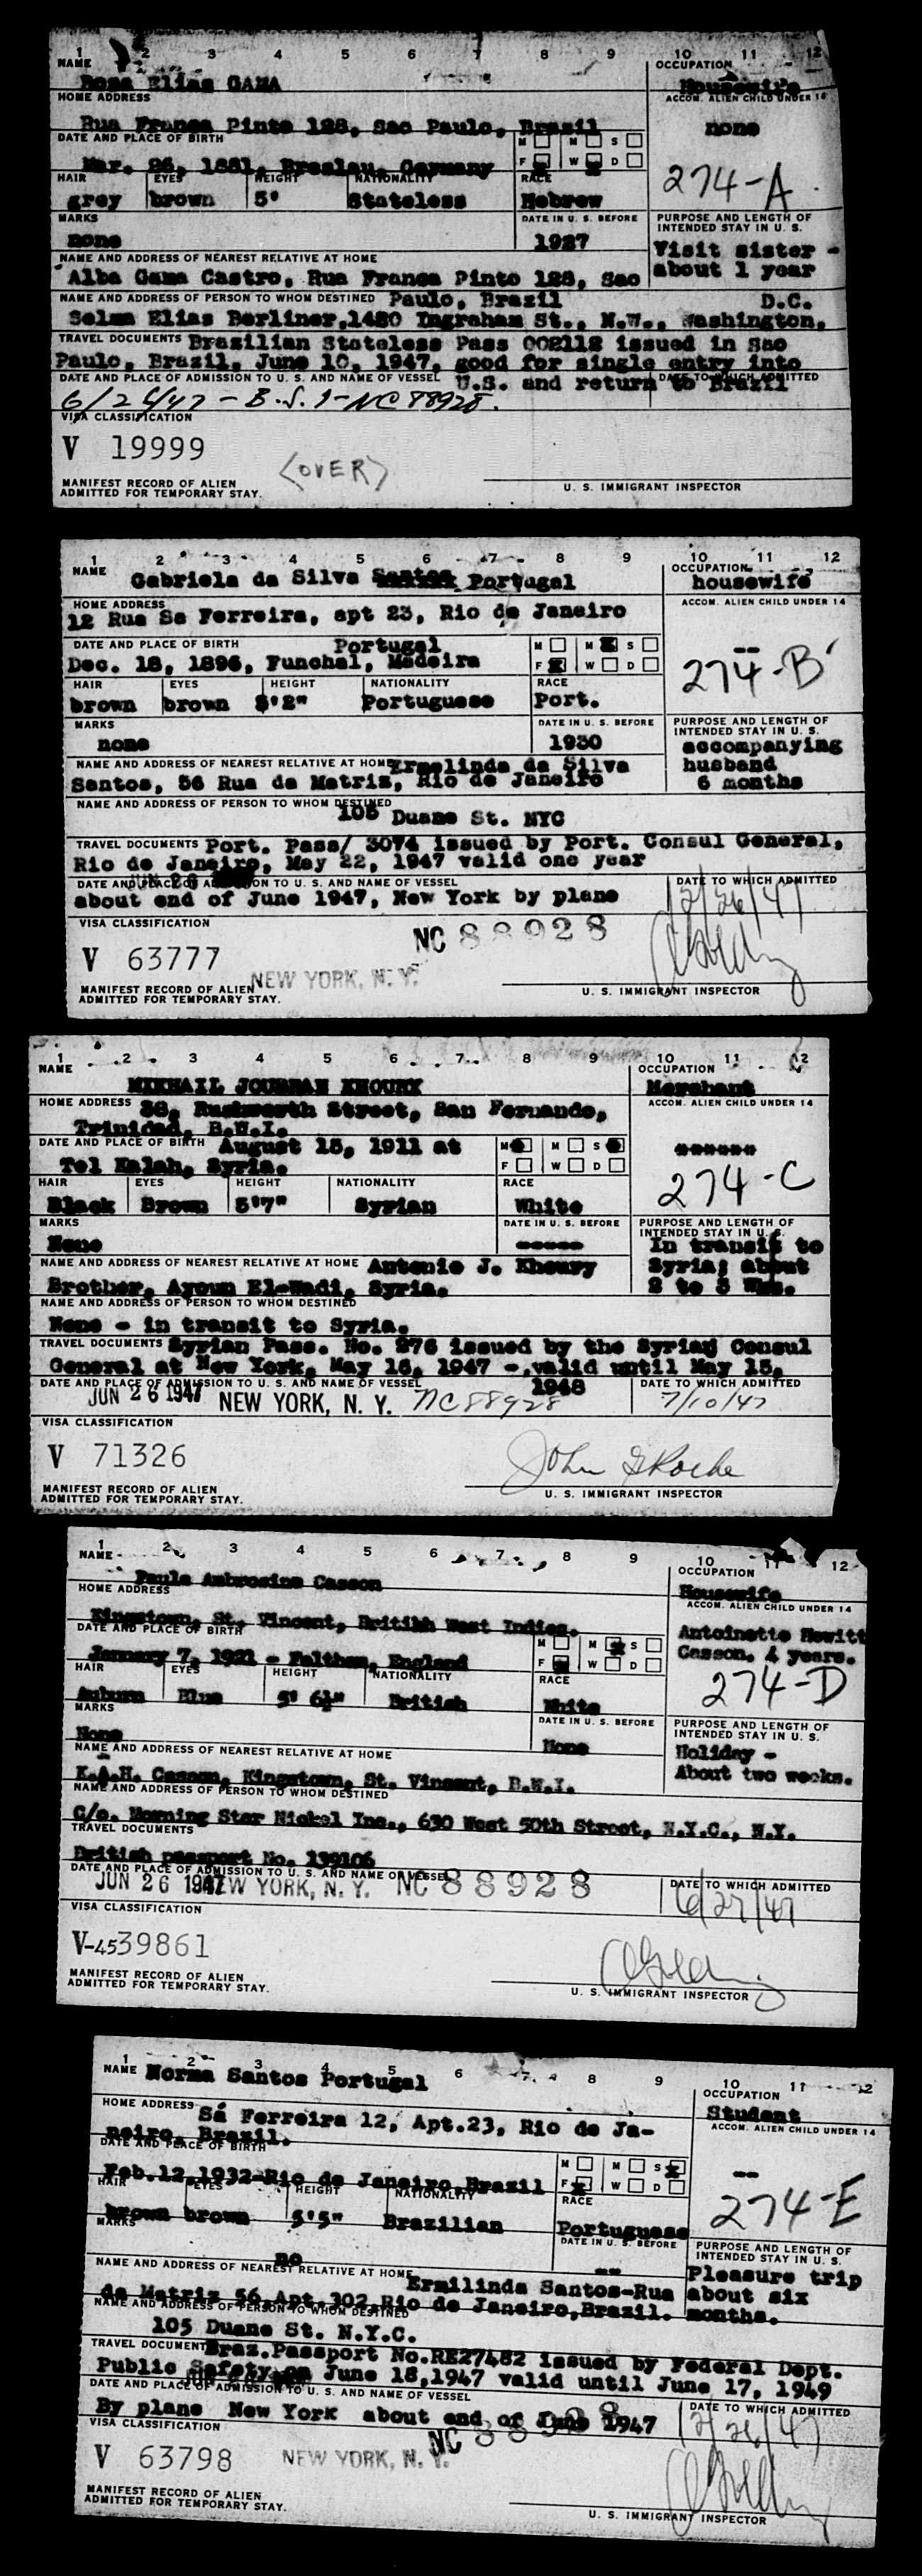 1 2 3 4 5 6 7 8 9 10 11 12
NAME
Rosa Elias GAMA
OCCUPATION
Housewife
HOME ADDRESS
Rua Franca Pinto 128, Sao Paulo, Brazil
ACCOM. ALIEN CHILD UNDER 14
none
DATE AND PLACE OF BIRTH
Mar. 26, 1881, Breslau, Germany
M M S
F W D
274-A
HAIR EYES HEIGHT NATIONALITY RACE
grey brown 5' Stateless Hebrew
MARKS
none
DATE IN U. S. BEFORE
1927
PURPOSE AND LENGTH OF
INTENDED STAY IN U. S.
Visit sister -
about 1 year
NAME AND ADDRESS OF NEAREST RELATIVE AT HOME
Alba Gama Castro, Rua Franca Pinto 128, Sao
Paulo, Brazil
NAME AND ADDRESS OF PERSON TO WHOM DESTINED
D.C.
Selma Elias Berliner, 1420 Ingraham St., N.W., Washington,
TRAVEL DOCUMENTS Brazilian Stateless Pass 002112 issued in Sao
Paulo, Brazil, June 10, 1947, good for single entry into
U.S. and return to Brazil
DATE AND PLACE OF ADMISSION TO U. S. AND NAME OF VESSEL
DATE TO WHICH ADMITTED
6/26/47 - B.S.I - NC 88928.
VISA CLASSIFICATION
V 19999
(OVER)
MANIFEST RECORD OF ALIEN
ADMITTED FOR TEMPORARY STAY.
U. S. IMMIGRANT INSPECTOR
1 2 3 4 5 6 7 8 9 10 11 12
NAME
Gabriela da Silva Santos Portugal
OCCUPATION
housewife
HOME ADDRESS
12 Rua Sa Ferreira, apt 23, Rio de Janeiro
ACCOM. ALIEN CHILD UNDER 14
--
DATE AND PLACE OF BIRTH Portugal
Dec. 18, 1896, Funchal, Madeira
M M S
F W D
274-B
HAIR EYES HEIGHT NATIONALITY RACE
brown brown 5'2" Portuguese Port.
MARKS
none
DATE IN U. S. BEFORE
1930
PURPOSE AND LENGTH OF
INTENDED STAY IN U. S.
accompanying
husband
6 months
NAME AND ADDRESS OF NEAREST RELATIVE AT HOME Ermelinda da Silva
Santos, 56 Rua da Matriz, Rio de Janeiro
NAME AND ADDRESS OF PERSON TO WHOM DESTINED
105 Duane St. NYC
TRAVEL DOCUMENTS Port. Pass/ 3074 issued by Port. Consul General,
Rio de Janeiro, May 22, 1947 valid one year
DATE AND PLACE OF ADMISSION TO U. S. AND NAME OF VESSEL
about end of June 1947, New York by plane
DATE TO WHICH ADMITTED
12/26/47
VISA CLASSIFICATION
V 63777
NC 88928
NEW YORK, N. Y.
MANIFEST RECORD OF ALIEN
ADMITTED FOR TEMPORARY STAY.
U. S. IMMIGRANT INSPECTOR
1 2 3 4 5 6 7 8 9 10 11 12
NAME
MIKHAIL JOUBRAN KHOURY
OCCUPATION
Merchant
HOME ADDRESS 38, Rushworth Street, San Fernando,
Trinidad, B.W.I.
ACCOM. ALIEN CHILD UNDER 14
DATE AND PLACE OF BIRTH August 15, 1911 at
Tel Kalah, Syria.
M M S
F W D
274-C
HAIR EYES HEIGHT NATIONALITY RACE
Black Brown 5'7" Syrian White
MARKS
None
DATE IN U. S. BEFORE
-----
PURPOSE AND LENGTH OF
INTENDED STAY IN U. S.
In transit to
Syria; about
2 to 3 Wks.
NAME AND ADDRESS OF NEAREST RELATIVE AT HOME Antonio J. Khoury
Brother, Ayoun El-Wadi, Syria.
NAME AND ADDRESS OF PERSON TO WHOM DESTINED
None - in transit to Syria.
TRAVEL DOCUMENTS Syrian Pass. No. 276 issued by the Syrian Consul
General at New York, May 16, 1947 - valid until May 15,
1948
DATE AND PLACE OF ADMISSION TO U. S. AND NAME OF VESSEL
JUN 26 1947 NEW YORK, N. Y. NC88928
DATE TO WHICH ADMITTED
7/10/47
VISA CLASSIFICATION
V 71326
John G Roche
MANIFEST RECORD OF ALIEN
ADMITTED FOR TEMPORARY STAY.
U. S. IMMIGRANT INSPECTOR
1 2 3 4 5 6 7 8 9 10 11 12
NAME
Paula Ambrosine Casson
OCCUPATION
Housewife
HOME ADDRESS
Kingstown, St. Vincent, British West Indies.
ACCOM. ALIEN CHILD UNDER 14
Antoinette Hewitt
Casson. 4 years.
DATE AND PLACE OF BIRTH
January 7, 1921 - Feltham, England
M M S
F W D
274-D
HAIR EYES HEIGHT NATIONALITY RACE
Auburn Blue 5' 6½" British White
MARKS
None
DATE IN U. S. BEFORE
None
PURPOSE AND LENGTH OF
INTENDED STAY IN U. S.
Holiday -
About two weeks.
NAME AND ADDRESS OF NEAREST RELATIVE AT HOME
K.A.H. Casson, Kingstown, St. Vincent, B.W.I.
NAME AND ADDRESS OF PERSON TO WHOM DESTINED
C/o. Morning Star Nickel Inc., 630 West 50th Street, N.Y.C., N.Y.
TRAVEL DOCUMENTS
British passport No. 139106
DATE AND PLACE OF ADMISSION TO U. S. AND NAME OF VESSEL
JUN 26 1947 NEW YORK, N. Y. NC 88928
DATE TO WHICH ADMITTED
6/27/47
VISA CLASSIFICATION
V-4539861
MANIFEST RECORD OF ALIEN
ADMITTED FOR TEMPORARY STAY.
U. S. IMMIGRANT INSPECTOR
1 2 3 4 5 6 7 8 9 10 11 12
NAME Norma Santos Portugal
OCCUPATION
Student
HOME ADDRESS Sá Ferreira 12, Apt.23, Rio de Ja-
neiro, Brazil.
ACCOM. ALIEN CHILD UNDER 14
--
DATE AND PLACE OF BIRTH
Feb.12,1932-Rio de Janeiro,Brazil
M M S
F W D
274-E
HAIR EYES HEIGHT NATIONALITY RACE
brown brown 5'5" Brazilian Portuguese
MARKS
no
DATE IN U. S. BEFORE
--
PURPOSE AND LENGTH OF
INTENDED STAY IN U. S.
Pleasure trip
about six
months.
NAME AND ADDRESS OF NEAREST RELATIVE AT HOME Ermilinda Santos-Rua
da Matriz 56,Apt.302,Rio de Janeiro,Brazil.
NAME AND ADDRESS OF PERSON TO WHOM DESTINED
105 Duane St. N.Y.C.
TRAVEL DOCUMENTS Braz.Passport No.RE27482 issued by Federal Dept.
Public Safety on June 18,1947 valid until June 17, 1949
DATE AND PLACE OF ADMISSION TO U. S. AND NAME OF VESSEL
By plane New York about end of June 1947
DATE TO WHICH ADMITTED
12/26/47
VISA CLASSIFICATION
NC 88928
V 63798
NEW YORK, N. Y.
MANIFEST RECORD OF ALIEN
ADMITTED FOR TEMPORARY STAY.
U. S. IMMIGRANT INSPECTOR